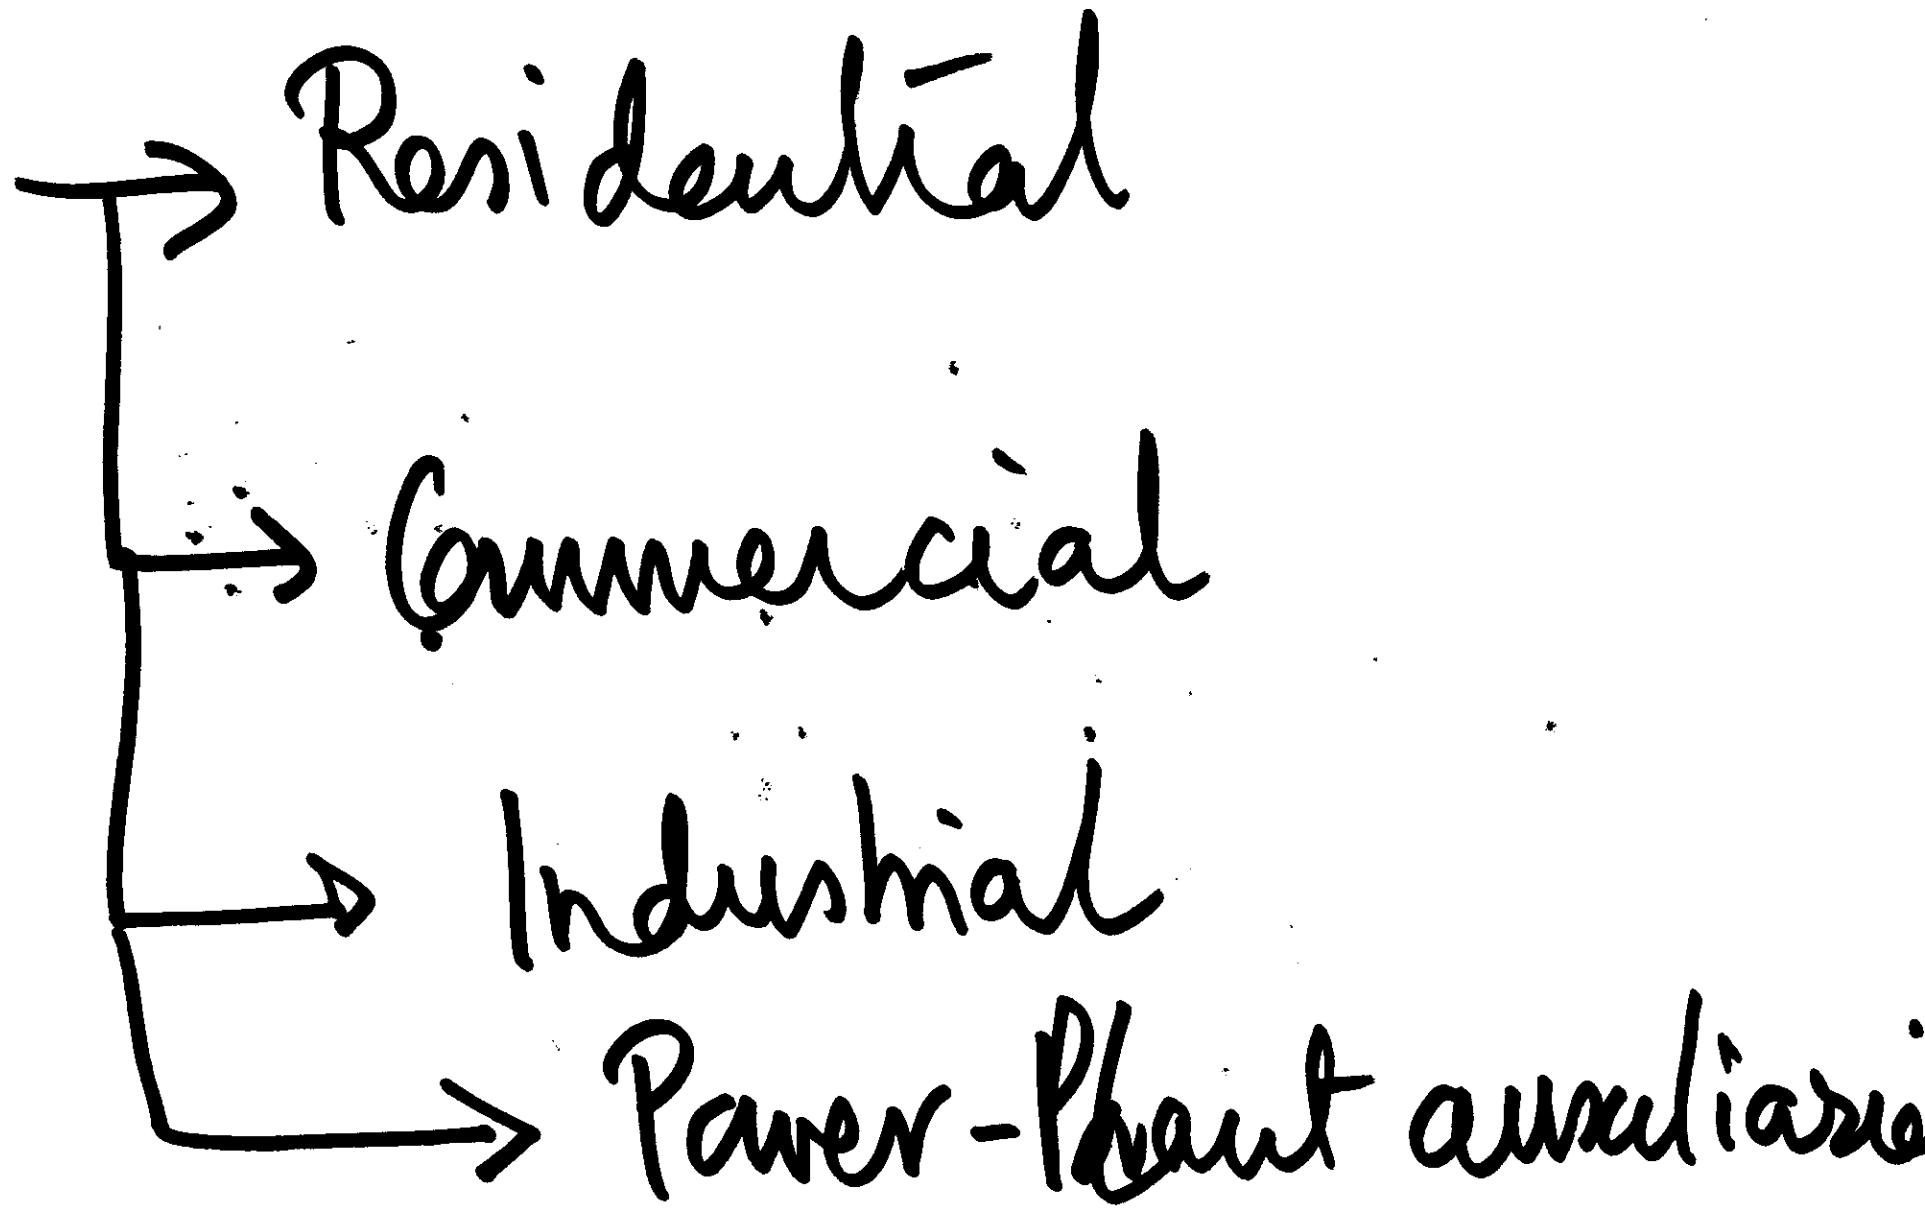 Residential
Commercial
Industrial
Power-Plant auxiliarie